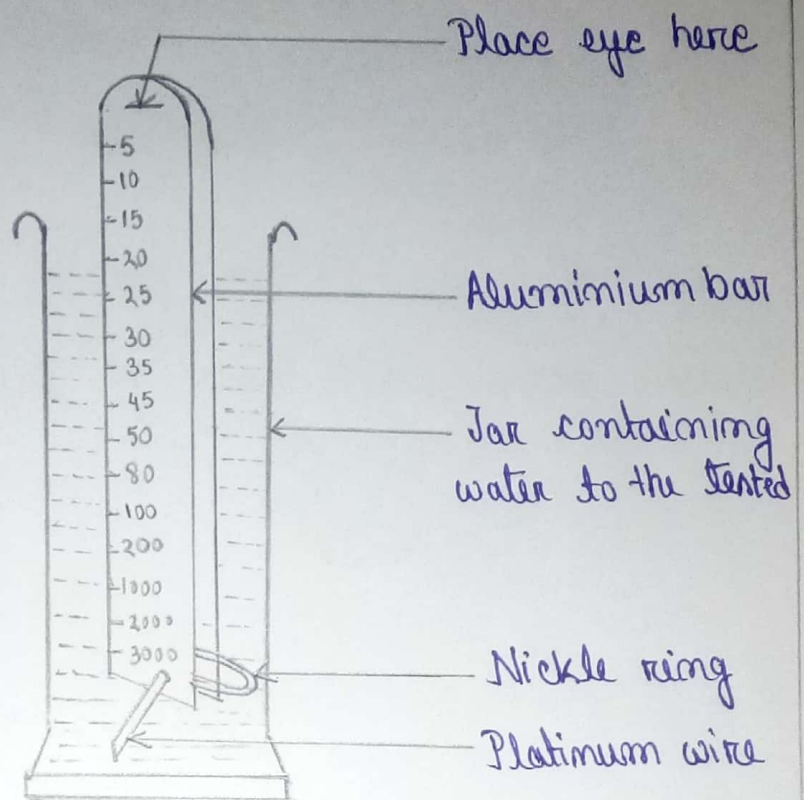 Place eye here
5
10
15
20
25
30
35
45
50
80
100
200
1000
2000
3000
Aluminium bar
Jar containing
water to the tested
Nickle ring
Platinum wire